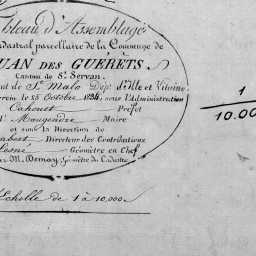 bleau d'Assemblage
adastral parcellaire de la Commune de
UAN DES GUÉRETS
Canton de St. Servan
nt de St. Malo Dépt d'Ille et Vilaine
rrein le 25 Octobre 1834, sous l'Administration
Cahouet Préfet
Maugendre Maire
et sous la Direction de
Directeur des Contributions
esné Géomètre en Chef
ar M. Géomètre du Cadastre
Echelle de 1 à 10,000
1
10.00